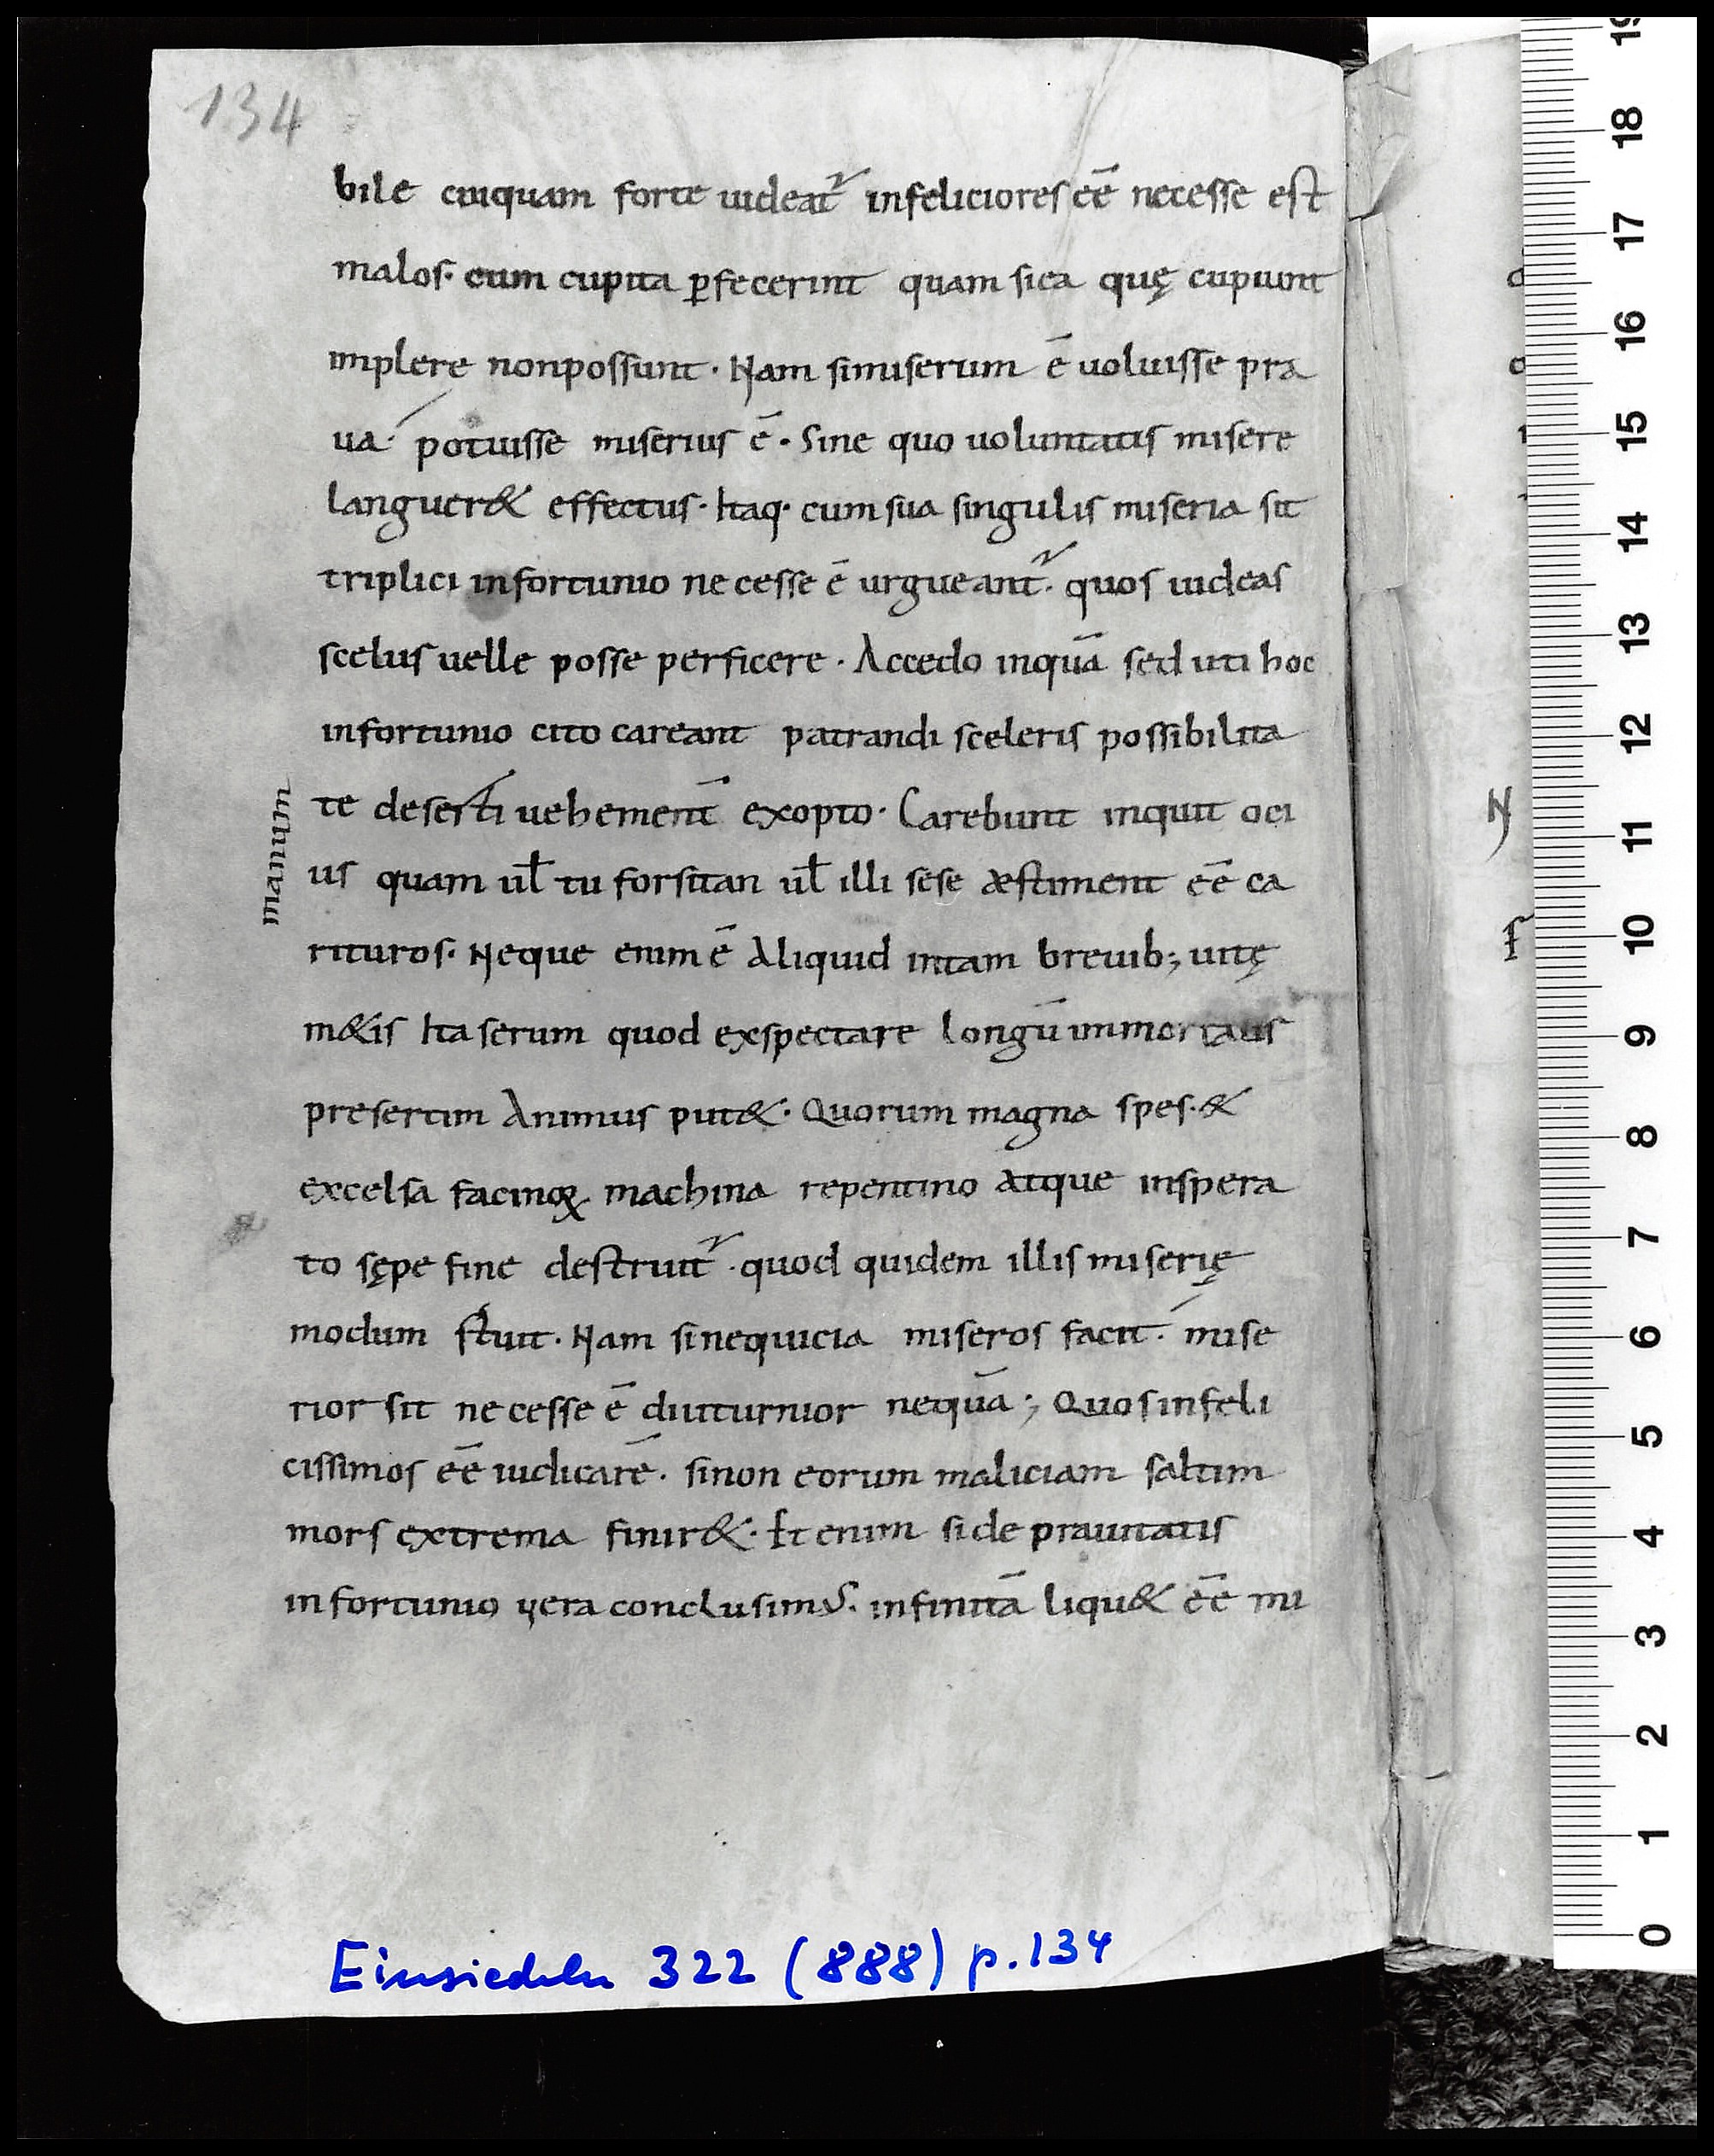 134
bile cuiquam forte uideat᷑ infeliciores eē necesse est
malos· cum cupita ꝑfecerint quam si ea quę cupiunt
implere non possunt · Nam si miserum ē uoluisse pra
ua· potuisse miserius ē · Sine quo uoluntatis misere
languer& effectus · Itaq· cum sua singulis miseria sit
triplici infortunio necesse ē urgueant᷑· quos uideas
scelus uelle posse perficere · Accedo inquā sed uti hoc
infortunio cito careant patrandi sceleris possibilita
te deserti uehement̄ exopto · Carebunt inquit oci
us quam ul̄ tu forsitan ul̄ illi sese æstiment eē ca
manum
rituros· Neque enim ē Aliquid intam breuib; uitę
m&is Ita serum quod exspectare longū immortalis
presertim Animus put&· Quorum magna spes· &
excelsa facinoꝝ machina repentino Atque inspera
to sępe fine destruit᷑ · quod quidem illis miserię
modum stuit · Nam si nequicia miseros facit · mise
rior sit necesse ē diuturnior neq̄uā ; Quos infeli
cissimos eē iudicarē · si non eorum maliciam saltim
mors extrema finir&· Et enim si de prauitatis
infortunio uera conclusimꝰ· infinitā liqu& eē mi
N
Einsiedeln 322 (888) p. 134
19
18
17
16
15
14
13
12
11
10
9
8
7
6
5
4
3
2
1
0